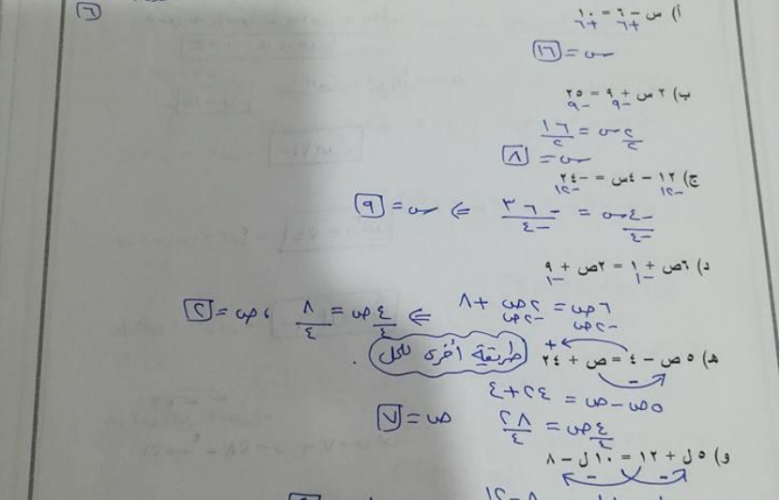 ٦
أ) س - ٦ = ١٠
+٦ +٦
س = ١٦
ب) ٢ س + ٩ = ٢٥
-٩ -٩
٢س/٢ = ١٦/٢
س = ٨
ج) ١٢ - ٤س = -٢٤
-١٢ -١٢
-٤س/-٤ = -٣٦/-٤ ⇒ س = ٩
د) ٦ص + ١ = ٢ص + ٩
-١ -١
٦ص = ٢ص + ٨
-٢ص -٢ص
⇒ ٤ص/٤ = ٨/٤ ، ص = ٢
هـ) ٥ ص - ٤ = ص + ٢٤
+ -
طريقة أخرى للحل .
٥ص - ص = ٢٤ + ٤
٤ص/٤ = ٢٨/٤ ص = ٧
و) ٥ ل + ١٢ = ١٠ ل - ٨